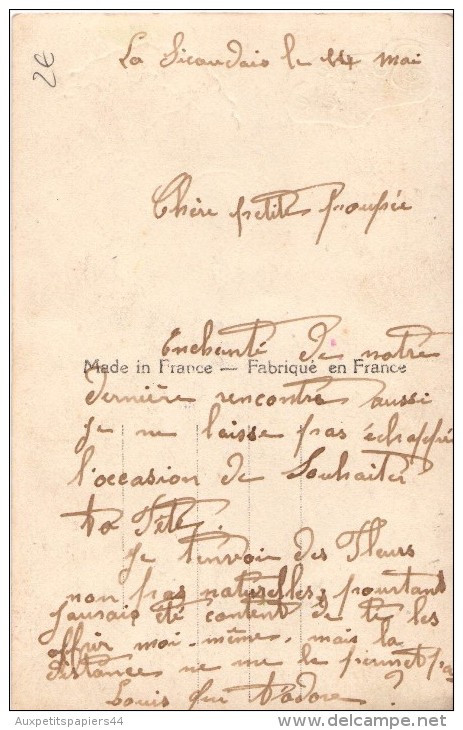 2€
La Sicaudais le 14 mai
Chère petite poupée
Enchanté de notre
Made in France — Fabriqué en France
dernière rencontre aussi
je ne laisse pas échapper
l'occasion de Souhaiter
ta Fête.
Je t'envoie des Fleurs
non pas naturelles, pourtant
jaurais été content de te les
offrir moi-même, mais la
distance ne me le permet pas
Louis qui t'adore
Auxpetitspapiers44